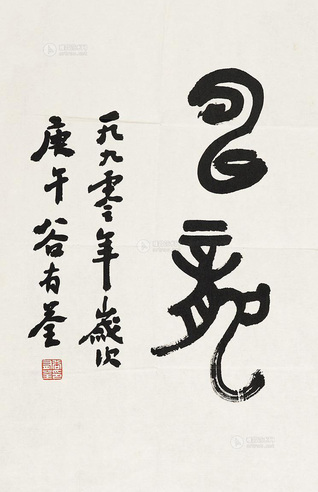 龍
一九九零年歲次
庚午谷有荃